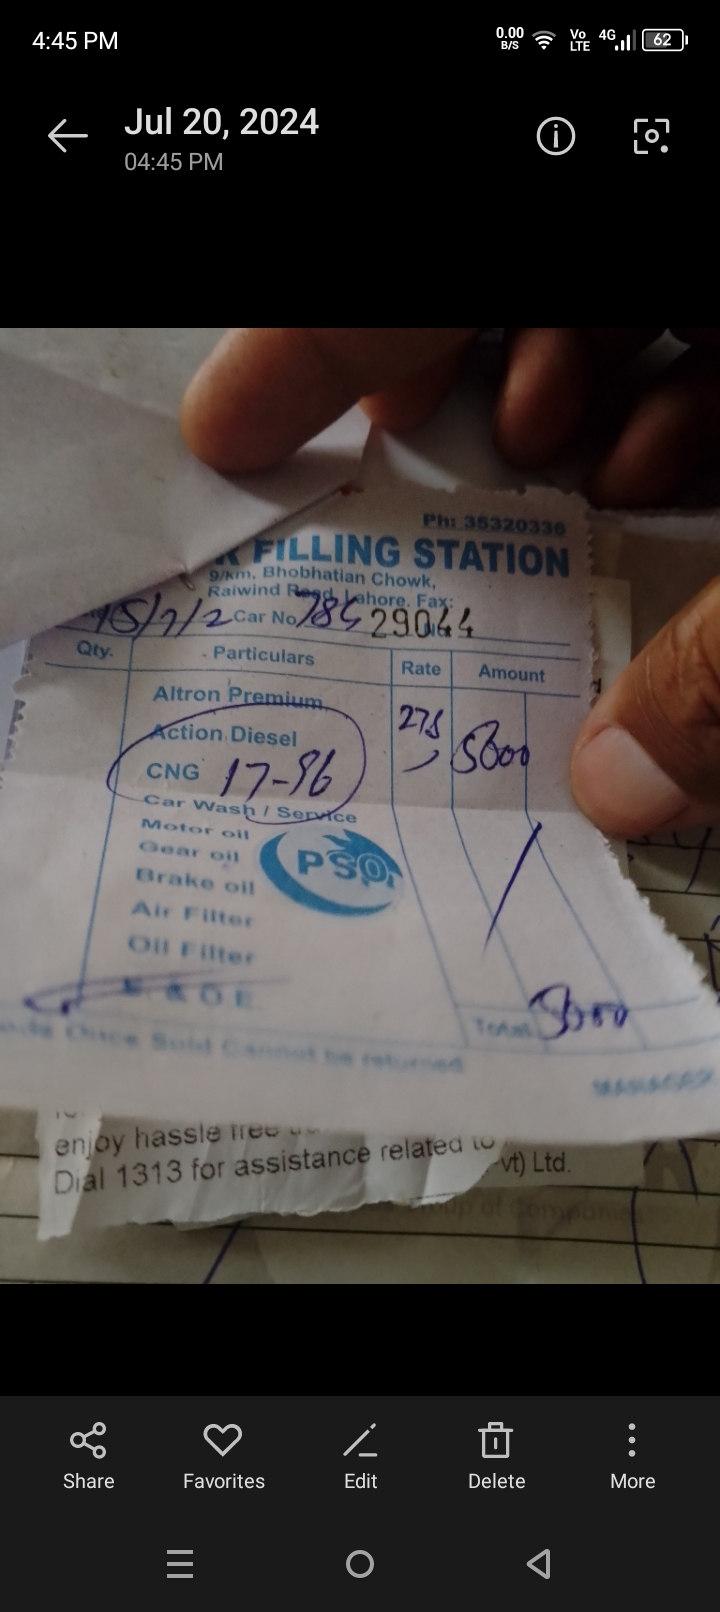 4:45 PM
0.00 B/S Vo LTE 4G 62
Jul 20, 2024
04:45 PM
Ph: 35320336
FILLING STATION
9/km, Bhobhatian Chowk,
Raiwind Road, Lahore. Fax:
Car No. 29044
Qty. Particulars Rate Amount
Altron Premium
Action Diesel 5000
CNG 17-96
Car Wash / Service
Motor oil
Gear oil
PSO
Brake oil
Air Filter
Oil Filter
E & O E
Total 5000
Once Sold Cannot be returned
MANAGER
enjoy hassle free
Dial 1313 for assistance related to
-vt) Ltd.
Group of Companies
Share Favorites Edit Delete More